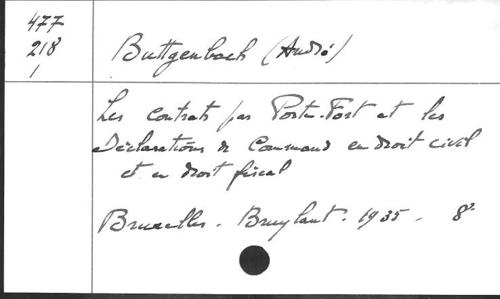 477
218
1
Buttgenbach (André)
Les contrats par Porte-Fort et les
Déclarations de Command en droit civil
et en droit fiscal
Bruxelles. Bruylant. 1935. 8°